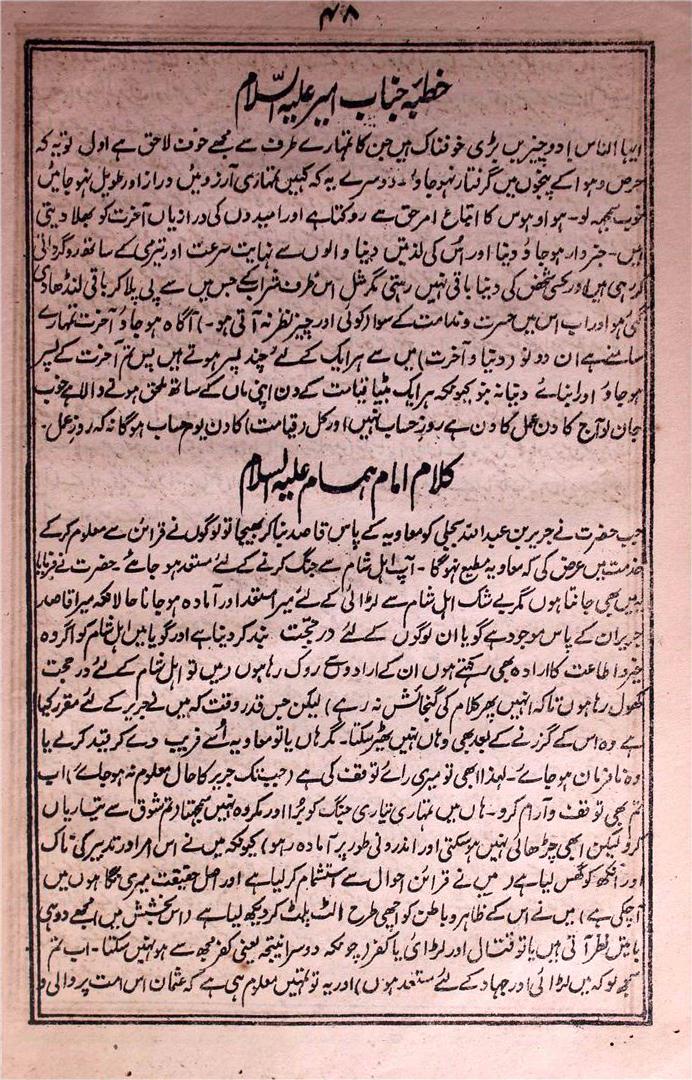 ۴۸
خطبۂ جناب امیر علیہ السّلام
ایہا الناس! دو چیزیں بڑی خوفناک ہیں جن کا تمہارے طرف سے مجھے خوف لاحق ہے اول تو یہ کہ
حرص و ہوا کے پنجوں میں گرفتار نہوجاؤ۔ دوسرے یہ کہ کہیں تمہاری آرزوئیں دراز اور طویل نہو جائیں
خوب سمجہہ لو۔ ہوا و ہوس کا اتباع امر حق سے روکتا ہے اور امیدوں کی درازیاں آخرت کو بھلا دیتی
ہیں۔ خبردار ہوجاؤ دنیا اور اُس کی لذتیں دنیا والوں سے نہایت سرعت اور تیزی کے ساتھ روگردانی
کر رہی ہیں اور کسی شخص کی دنیا باقی نہیں رہتی مگر مثل اس ظرف شراب کے جس میں سے پی پلا کر باقی لنڈھا دی
گئی ہو اور اب اس میں حسرت و ندامت کے سوا کوئی اور چیز نظر نہ آتی ہو۔) آگاہ ہوجاؤ آخرت تمہارے
سامنے ہے ان دونو (دنیا و آخرت) میں سے ہر ایک کے لئے چند پسر ہوتے ہیں پس تم آخرت کے پسر
ہوجاؤ اور ابنائے دنیا نہ بنو کیونکہ ہر ایک بیٹا قیامت کے دن اپنی ماں کے ساتھ ملحق ہونے والا ہے خوب
جان لو آج کا دن عمل کا دن ہے روزِ حساب نہیں اور کل (قیامت) کا دن یوم حساب ہوگا نہ کہ روز عمل۔
کلام امام ہمام علیہ السلام
جب حضرت نے جریر بن عبداللہ بجلی کو معاویہ کے پاس قاصد بنا کر بھیجا تو لوگوں نے قرائن سے معلوم کر کے
خدمت میں عرض کی کہ معاویہ مطیع نہوگا۔ آپ اہل شام سے جنگ کرنے کے لئے مستعد ہو جائے۔ حضرت نے فرمایا
یہ میں بھی جانتا ہوں مگر بے شک اہل شام سے لڑائی کے لئے میرا مستعد اور آمادہ ہوجانا حالانکہ میرا قاصد
جریر ان کے پاس موجود ہے گویا ان لوگوں کے لئے در حجت بند کردینا ہے اور گویا میں اہل شام کو اگر وہ
خیر و اطاعت کا ارادہ بھی رکھتے ہوں ان کے ارادوں سے روک رہا ہوں (میں تو اہل شام کے لئے در حجت
کھول رہا ہوں تاکہ انہیں پھر کلام کی گنجائش نہ رہے) لیکن جس قدر وقت کہ میں نے جریر کے لئے مقرر کیا
ہے وہ اس کے گزرنے کے بعد بھی وہاں نہیں ٹھیر سکتا۔ مگر ہاں یا تو معاویہ اُسے فریب دے کر قید کر لے یا
وہ نافرمان ہوجائے۔ لہذا ابھی تو میری رائے توقف کی ہے (جب تک جریر کا حال معلوم نہ ہوجائے) اب
تم بھی توقف و آرام کرو۔ ہاں میں تمہاری تیاری جنگ کو بُرا اور مکروہ نہیں سمجھتا (تم شوق سے تیاریاں
کرو لیکن ابھی چڑھائی نہیں ہوسکتی اور اندرونی طور پر آمادہ رہو) کیونکہ میں نے اس امر اور تدبیر کی ناک
اور آنکھ کو گھس لیا ہے (میں نے قرائن احوال سے استشمام کرلیا ہے اور اصل حقیقت میری نگاہوں میں
آچکی ہے) میں نے اس کے ظاہر و باطن کو اچھی طرح الٹ پلٹ کر دیکھ لیا ہے (اس جنبش میں) مجھے دو ہی
باتیں نظر آتی ہیں یا تو قتال اور لڑائی یا کفر (چونکہ دوسرا نتیجہ یعنی کفر مجھ سے ہو نہیں سکتا۔ اب تم
سمجھ لو کہ میں لڑائی اور جہاد کے لئے مستعد ہوں) اور یہ تو تمہیں معلوم ہی ہے کہ عثمان اس امت پر والی و